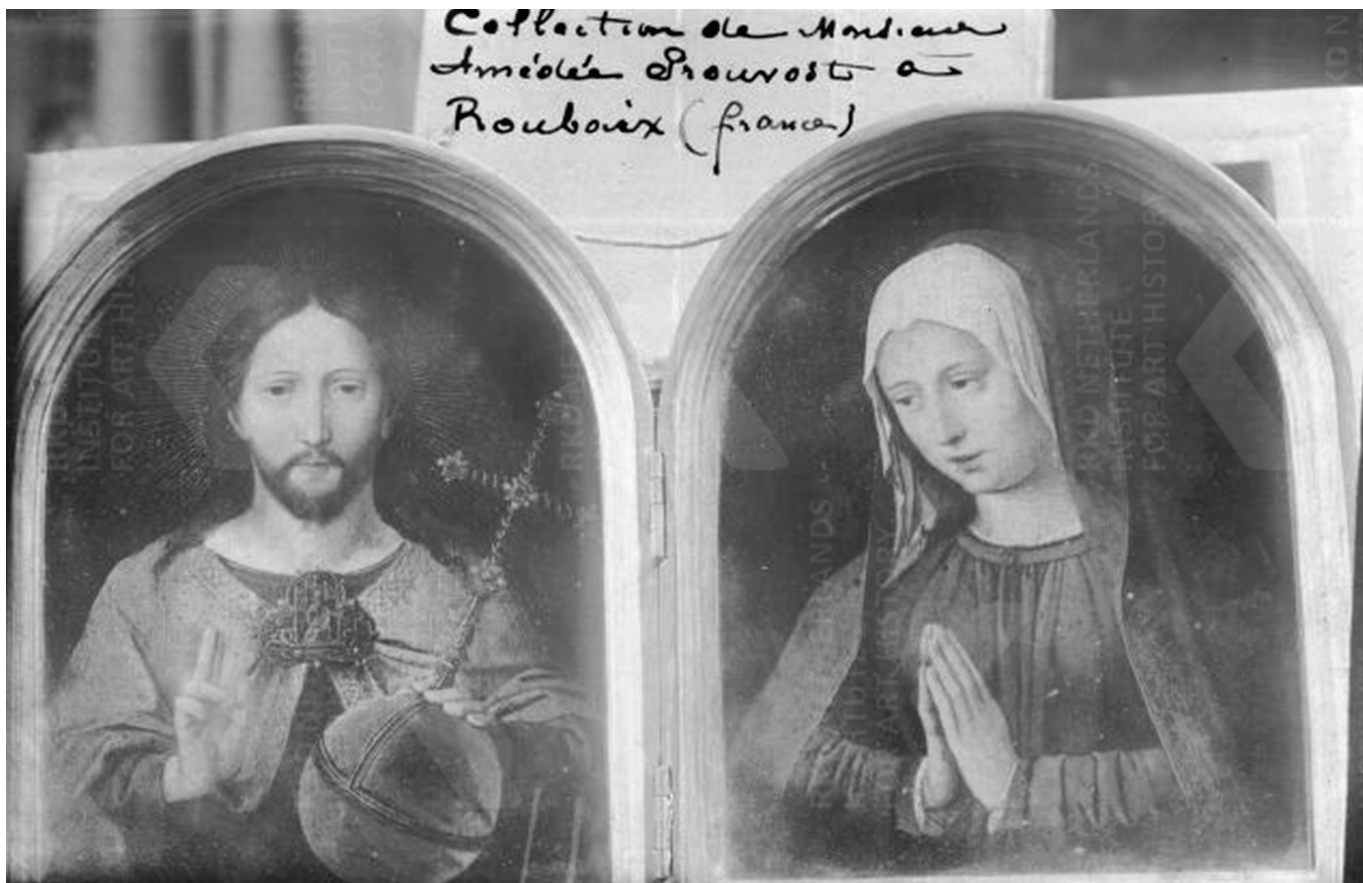 Collection de Monsieur
Amédée Prouvost à
Roubaix (france)
RKD NETHERLANDS
INSTITUTE
FOR ART HISTORY